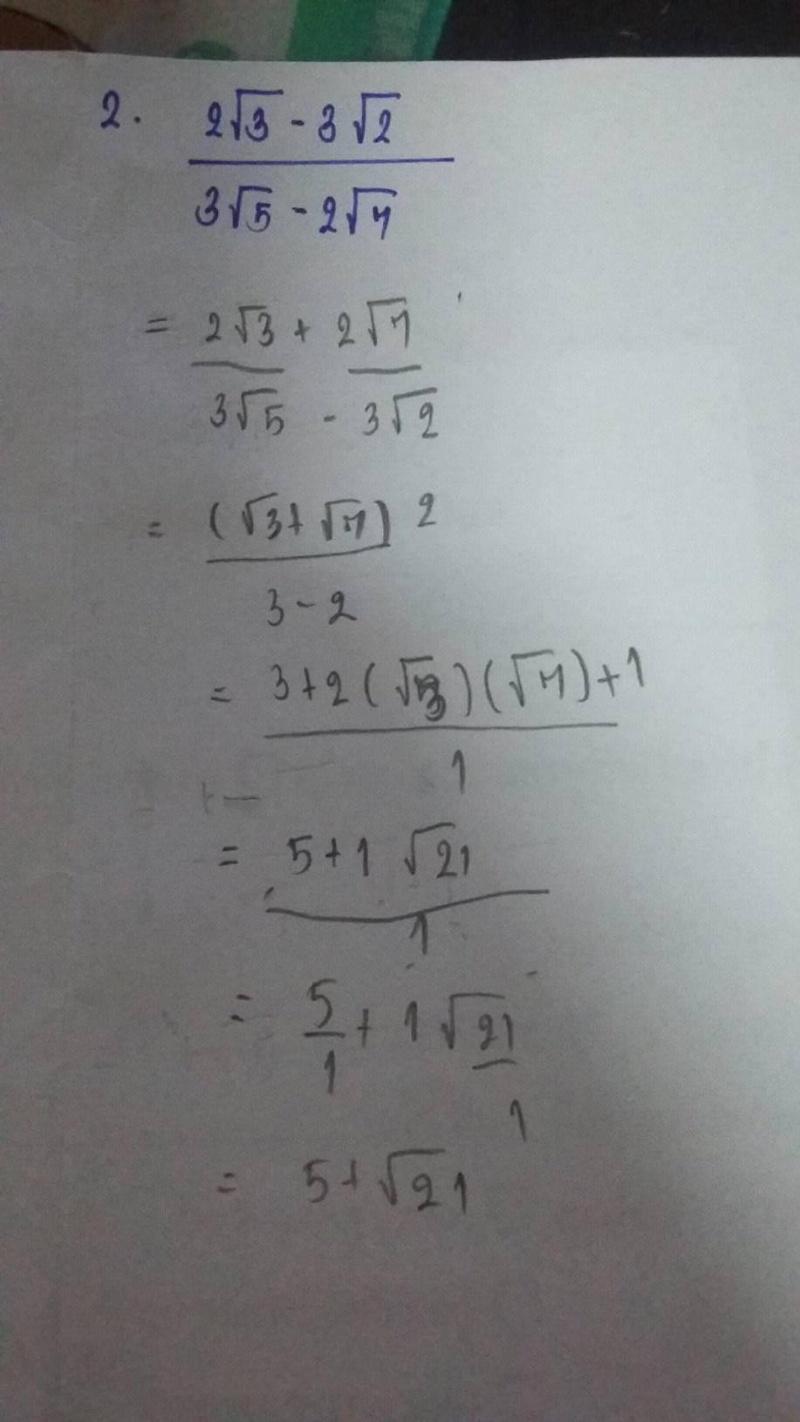 2. 2√3 - 3√2
3√5 - 2√7
= 2√3 + 2√7
3√5 - 3√2
= (√3+√7) 2
3-2
= 3+2(√3)(√7)+1
1
= 5+1 √21
1
= 5/1 + 1 √21
1
= 5+√21